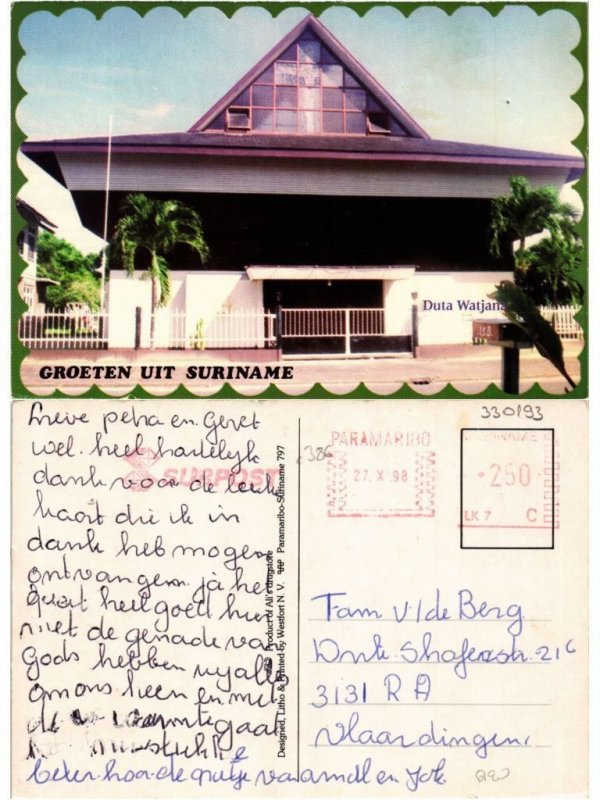 Duta Watjana
GROETEN UIT SURINAME
330193
Lieve petra en Geret
wel heel hartelijk
dank voor de leuke
kaart die ik in
dank heb mogen
ontvangen ja het
gaat heel goed hier
niet de genade van
Gods hebben wij alle
om ons heen en met
de warmte gaat
beter hoor de groetje van
SURPOST
Product of Ali's drugstore
Designed, Litho & Printed by Westfort N.V. Paramaribo-Suriname 797
386
PARAMARIBO
27. X. 98
SURINAME
250
LK 7 C
Fam v/de Berg
216
3131 RA
Vlaardingen